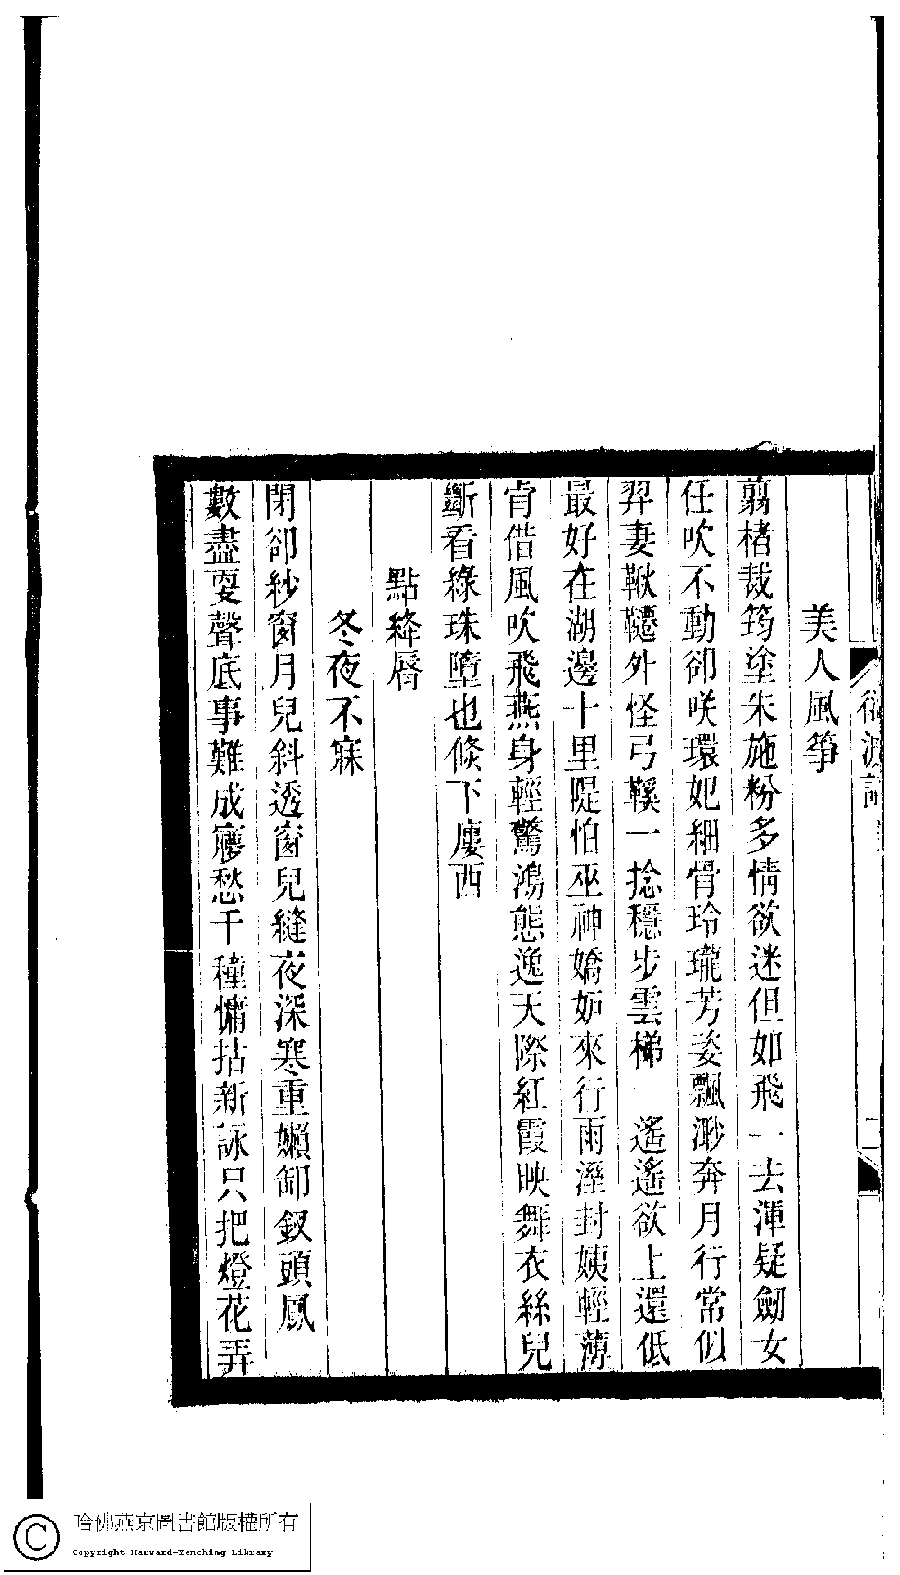 美人風箏
翦楮裁筠塗朱施粉多情欲迷但如飛一去渾疑劒女
任吹不動卻咲環妃細骨玲瓏芳姿飄渺奔月行常似
羿妻鞦韆外怪弓鞵一捻穩步雲梯　遙遙欲上還低
最好在湖邊十里隄怕巫神嬌妒來行雨溼封姨輕薄
肯借風吹飛燕身輕驚鴻態逸天際紅霞映舞衣絲兒
斷看綠珠墮也倏下廔西
點絳脣
冬夜不寐
閉卻紗窗月兒斜透窗兒縫夜深寒重嬾卸釵頭鳳
數盡更聲底事難成㝱愁千種慵拈新詠只把燈花弄
哈佛燕京圖書館版權所有
Copyright Harvard-Yenching Library